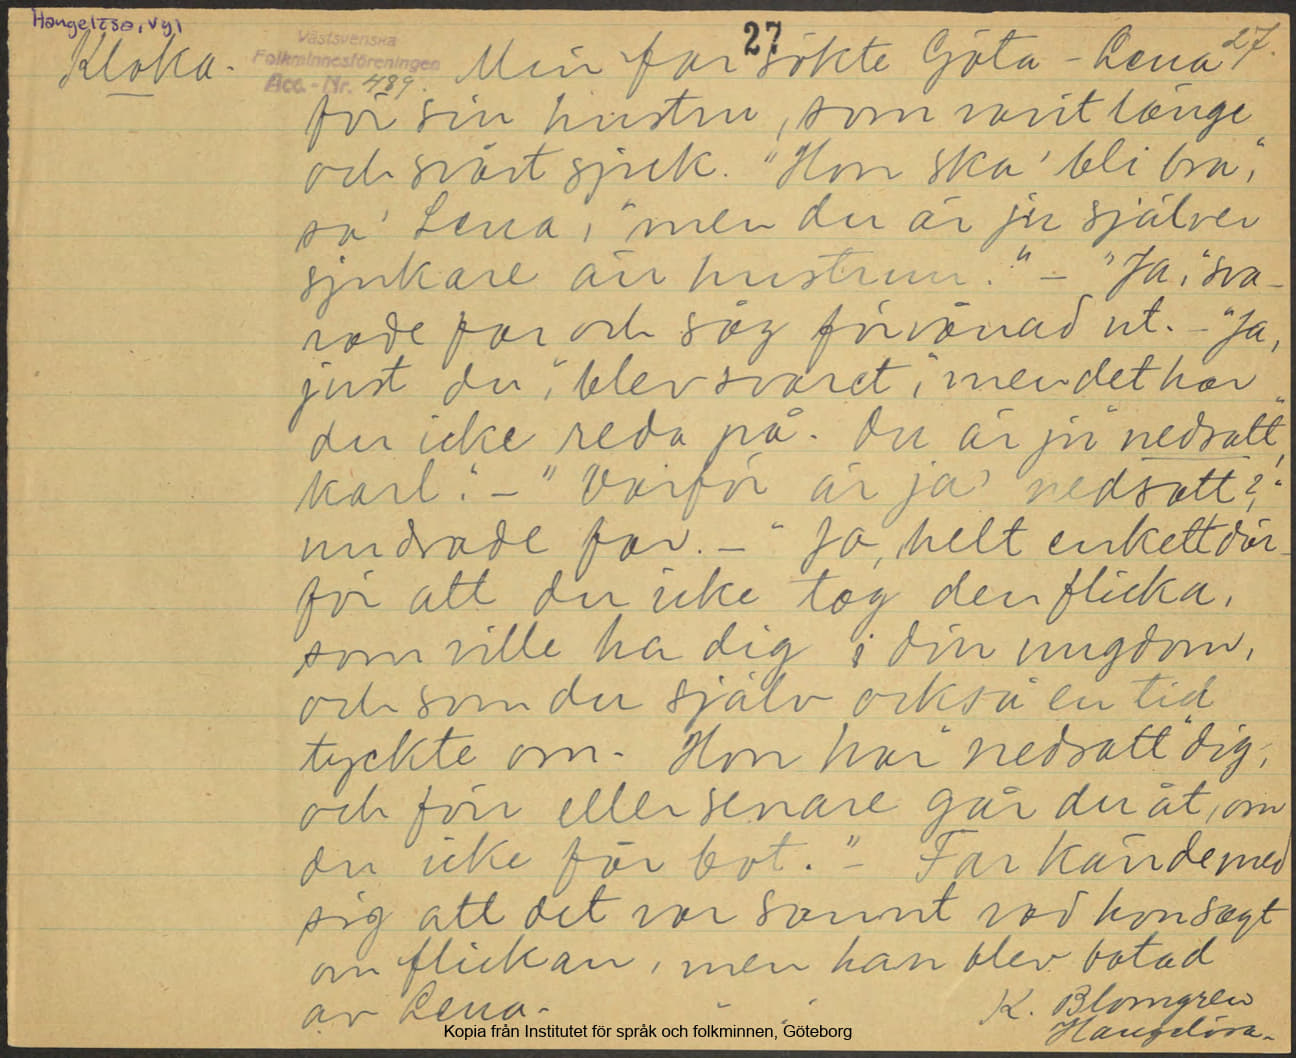 Hangelösa, Vgl
27
27.
Kloka.
Västsvenska
Folkminnesföreningen
Acc.-Nr. 489.
Min far sökte Göta-Lena
för sin hustru, som varit länge
och svårt sjuk. "Hon ska' bli bra",
sa' Lena, "men du är ju själver
sjukare än hustrun." – "Ja", sva-
rade far och såg förvånad ut. – "Ja,
just du", blev svaret, "men det har
du icke reda på. Du är ju "nedsatt",
karl". – "Varför är ja' nedsatt?",
undrade far. – "Ja, helt enkelt där-
för att du icke tog den flicka,
som ville ha dig i din ungdom,
och som du själv också en tid
tyckte om. Hon har "nedsatt" dig,
och förr eller senare går du åt, om
du icke får bot." – Far kände med
sig att det var sannt vad hon sagt
om flickan, men han blev botad
av Lena.
K. Blomgren
Hangelösa.
Kopia från Institutet för språk och folkminnen, Göteborg